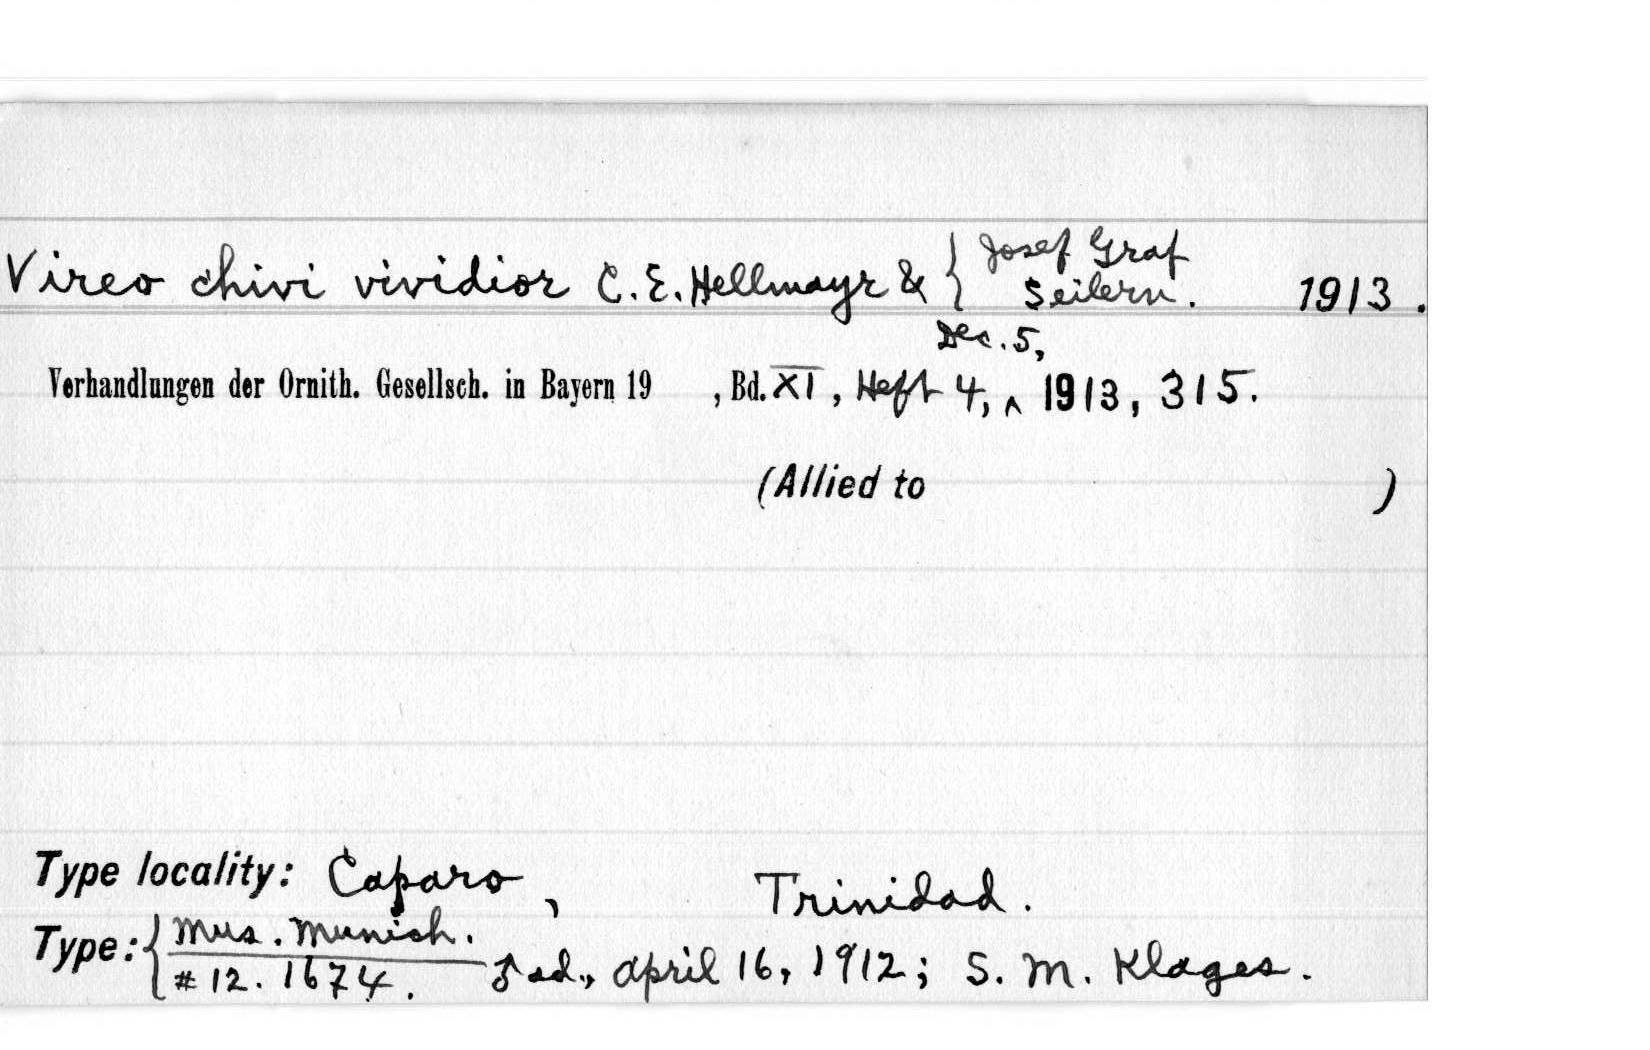 Vireo chivi vividior C. E. Hellmayr & { Josef Graf Seilern. 1913.
Dec. 5,
Verhandlungen der Ornith. Gesellsch. in Bayern 19 , Bd. XI, Heft 4, ^ 1913, 315.
(Allied to )
Type locality: Caparo, Trinidad.
Type: { Mus. Munich.
#12.1674. ♂ ad., April 16, 1912; S. M. Klages.